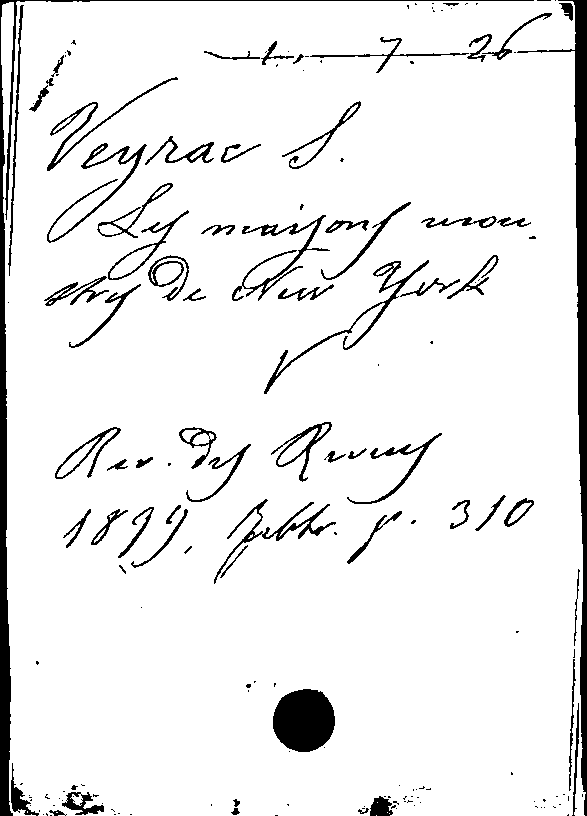 1. 7. 26
Veyrac S.
Les maisons mon-
stres de New York
Rev. des Revues
1899, febbr. p. 310